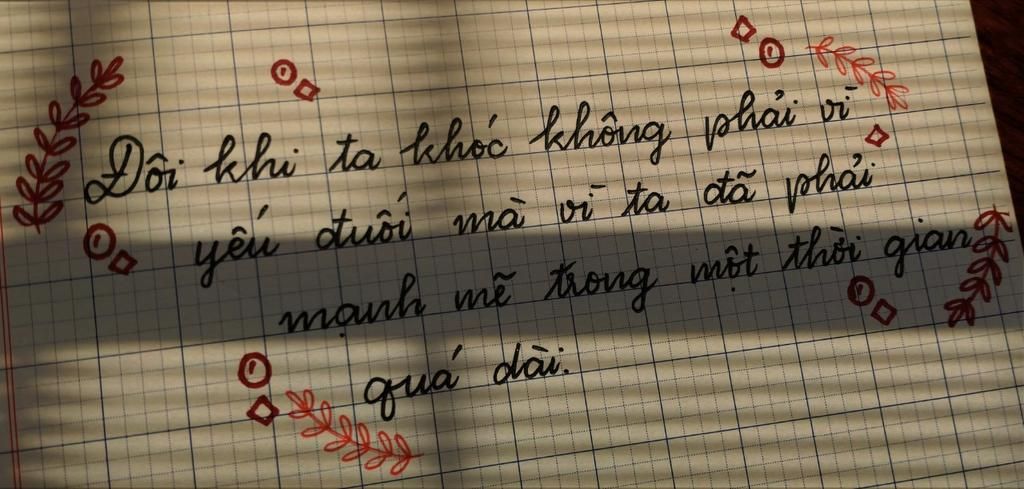 Đôi khi ta khóc không phải vì
yếu đuối mà vì ta đã phải
mạnh mẽ trong một thời gian
quá dài.